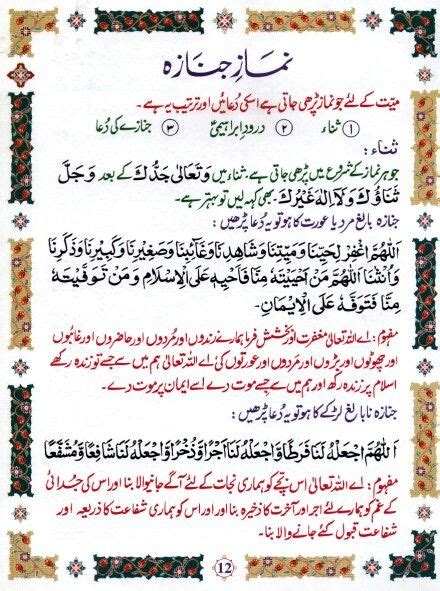 نمازِ جنازہ
میّت کے لئے جو نماز پڑھی جاتی ہے اسکی دُعائیں اور ترتیب یہ ہے۔
① ثناء ② درودِ ابراہیمیؑ ③ جنازے کی دُعا
ثناء:
جو ہر نماز کے شروع میں پڑھی جاتی ہے، ثناء میں وَتَعَالٰی جَدُّكَ کے بعد وَجَلَّ
ثَنَاؤُكَ وَلَا اِلٰهَ غَيْرُكَ۔ بھی کہہ لیں تو بہتر ہے۔
جنازہ بالغ مرد یا عورت کا ہو تو یہ دُعا پڑھیں:
اَللّٰهُمَّ اغْفِرْ لِحَيِّنَا وَمَيِّتِنَا وَشَاهِدِنَا وَغَآئِبِنَا وَصَغِيْرِنَا وَكَبِيْرِنَا وَذَكَرِنَا
وَاُنْثٰنَا اَللّٰهُمَّ مَنْ اَحْيَيْتَهٗ مِنَّا فَاَحْيِهٖ عَلَى الْاِسْلَامِ وَمَنْ تَوَفَّيْتَهٗ
مِنَّا فَتَوَفَّهٗ عَلَى الْاِيْمَانِ۔
مفہوم: اے اللہ تعالیٰ مغفرت اور بخشش فرما ہمارے زندوں اور مُردوں اور حاضروں اور غائبوں
اور چھوٹوں اور بڑوں اور مَردوں اور عورتوں کی اے اللہ تعالیٰ ہم میں سے جسے تو زندہ رکھے
اسلام پر زندہ رکھ اور ہم میں سے جِسے موت دے اسے ایمان پر موت دے۔
جنازہ نابالغ لڑکے کا ہو تو یہ دُعا پڑھیں:
اَللّٰهُمَّ اجْعَلْهُ لَنَا فَرَطًا وَّاجْعَلْهُ لَنَا اَجْرًا وَّذُخْرًا وَّاجْعَلْهُ لَنَا شَافِعًا وَّمُشَفَّعًا
مفہوم: اے اللہ تعالیٰ اس بچّے کو ہماری نجات کے لئے آگے جانیوالا بنا اور اس کی جُدائی
کے غم کو ہمارے لئے اجر اور آخرت کا ذخیرہ بنا اور اور اس کو ہماری شفاعت کا ذریعہ اور
شفاعت قبول کئے جانے والا بنا۔
12